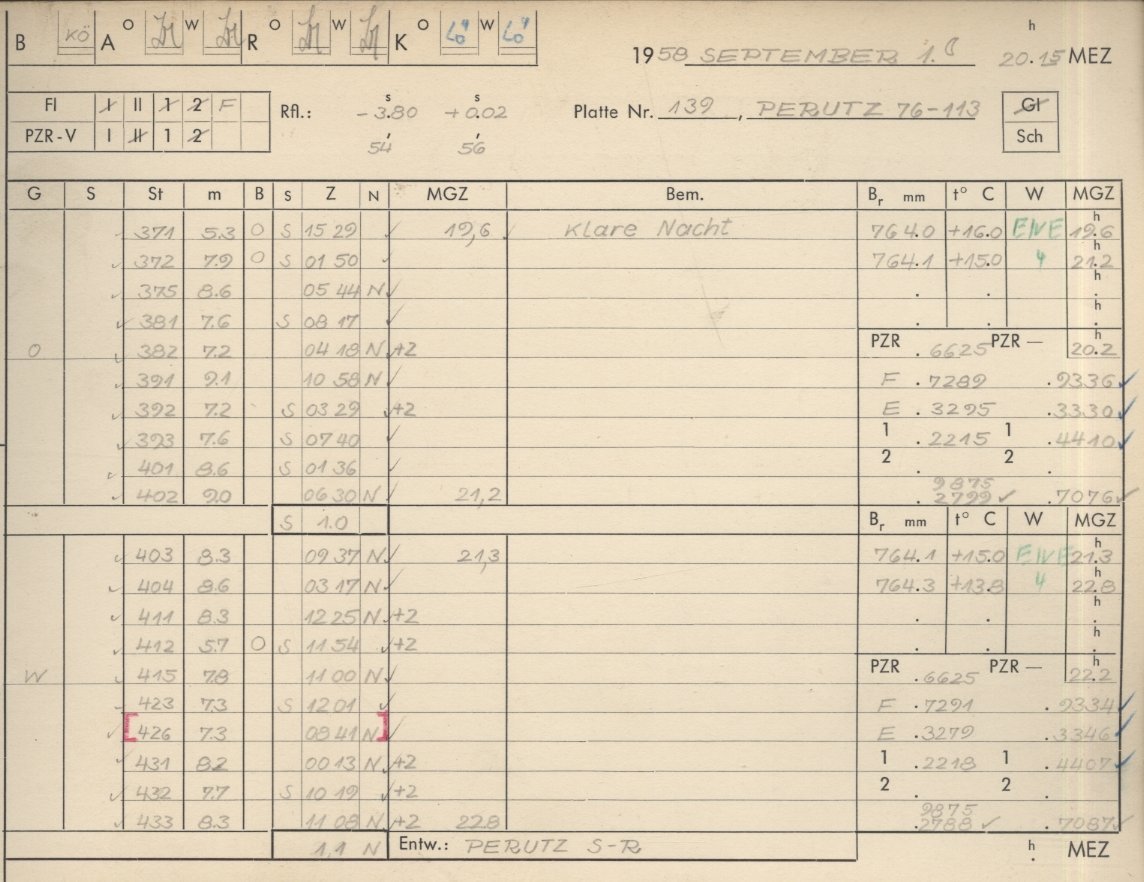 B KÖ A O W R O W K O Lö W Lö
1958 SEPTEMBER 1. 20.15 h MEZ
FI I II 1 2 F
PZR-V I II 1 2
Rfl.: - 3.80 s + 0.02 s
54 56
Platte Nr. 139, PERUTZ 76-113
GI
Sch
G S St m B S Z N MGZ Bem. Br mm t° C W MGZ
371 5.3 O S 15 29 19,6 Klare Nacht 764.0 +16.0 ENE 19.6 h
372 7.9 O S 01 50 764.1 +15.0 4 21.2 h
375 8.6 05 44 N . . h
381 7.6 S 08 17 . . h
O 382 7.2 04 18 N +2 PZR .6625 PZR — 20.2 h
391 9.1 10 58 N F .7289 .9336
392 7.2 S 03 29 +2 E .3295 .3330
393 7.6 S 07 40 1 .2215 1 .4410
401 8.6 S 01 36 2 . 2 .
402 9.0 06 30 N 21,2 9875 .2799 .7076
S 1.0 Br mm t° C W MGZ
403 8.3 09 37 N 21,3 764.1 +15.0 ENE 21.3 h
404 8.6 03 17 N 764.3 +13.8 4 22.8 h
411 8.3 12 25 N +2 . . h
412 5.7 O S 11 54 +2 . . h
W 415 7.8 11 00 N PZR .6625 PZR — 22.2 h
423 7.3 S 12 01 F .7291 .9334
[426 7.3 08 41 N] E .3279 .3346
431 8.2 00 13 N +2 1 .2218 1 .4407
432 7.7 S 10 19 +2 2 . 2 .
433 8.3 11 08 N +2 22.8 9875 .2788 .7087
1,1 N Entw.: PERUTZ S-R h . MEZ